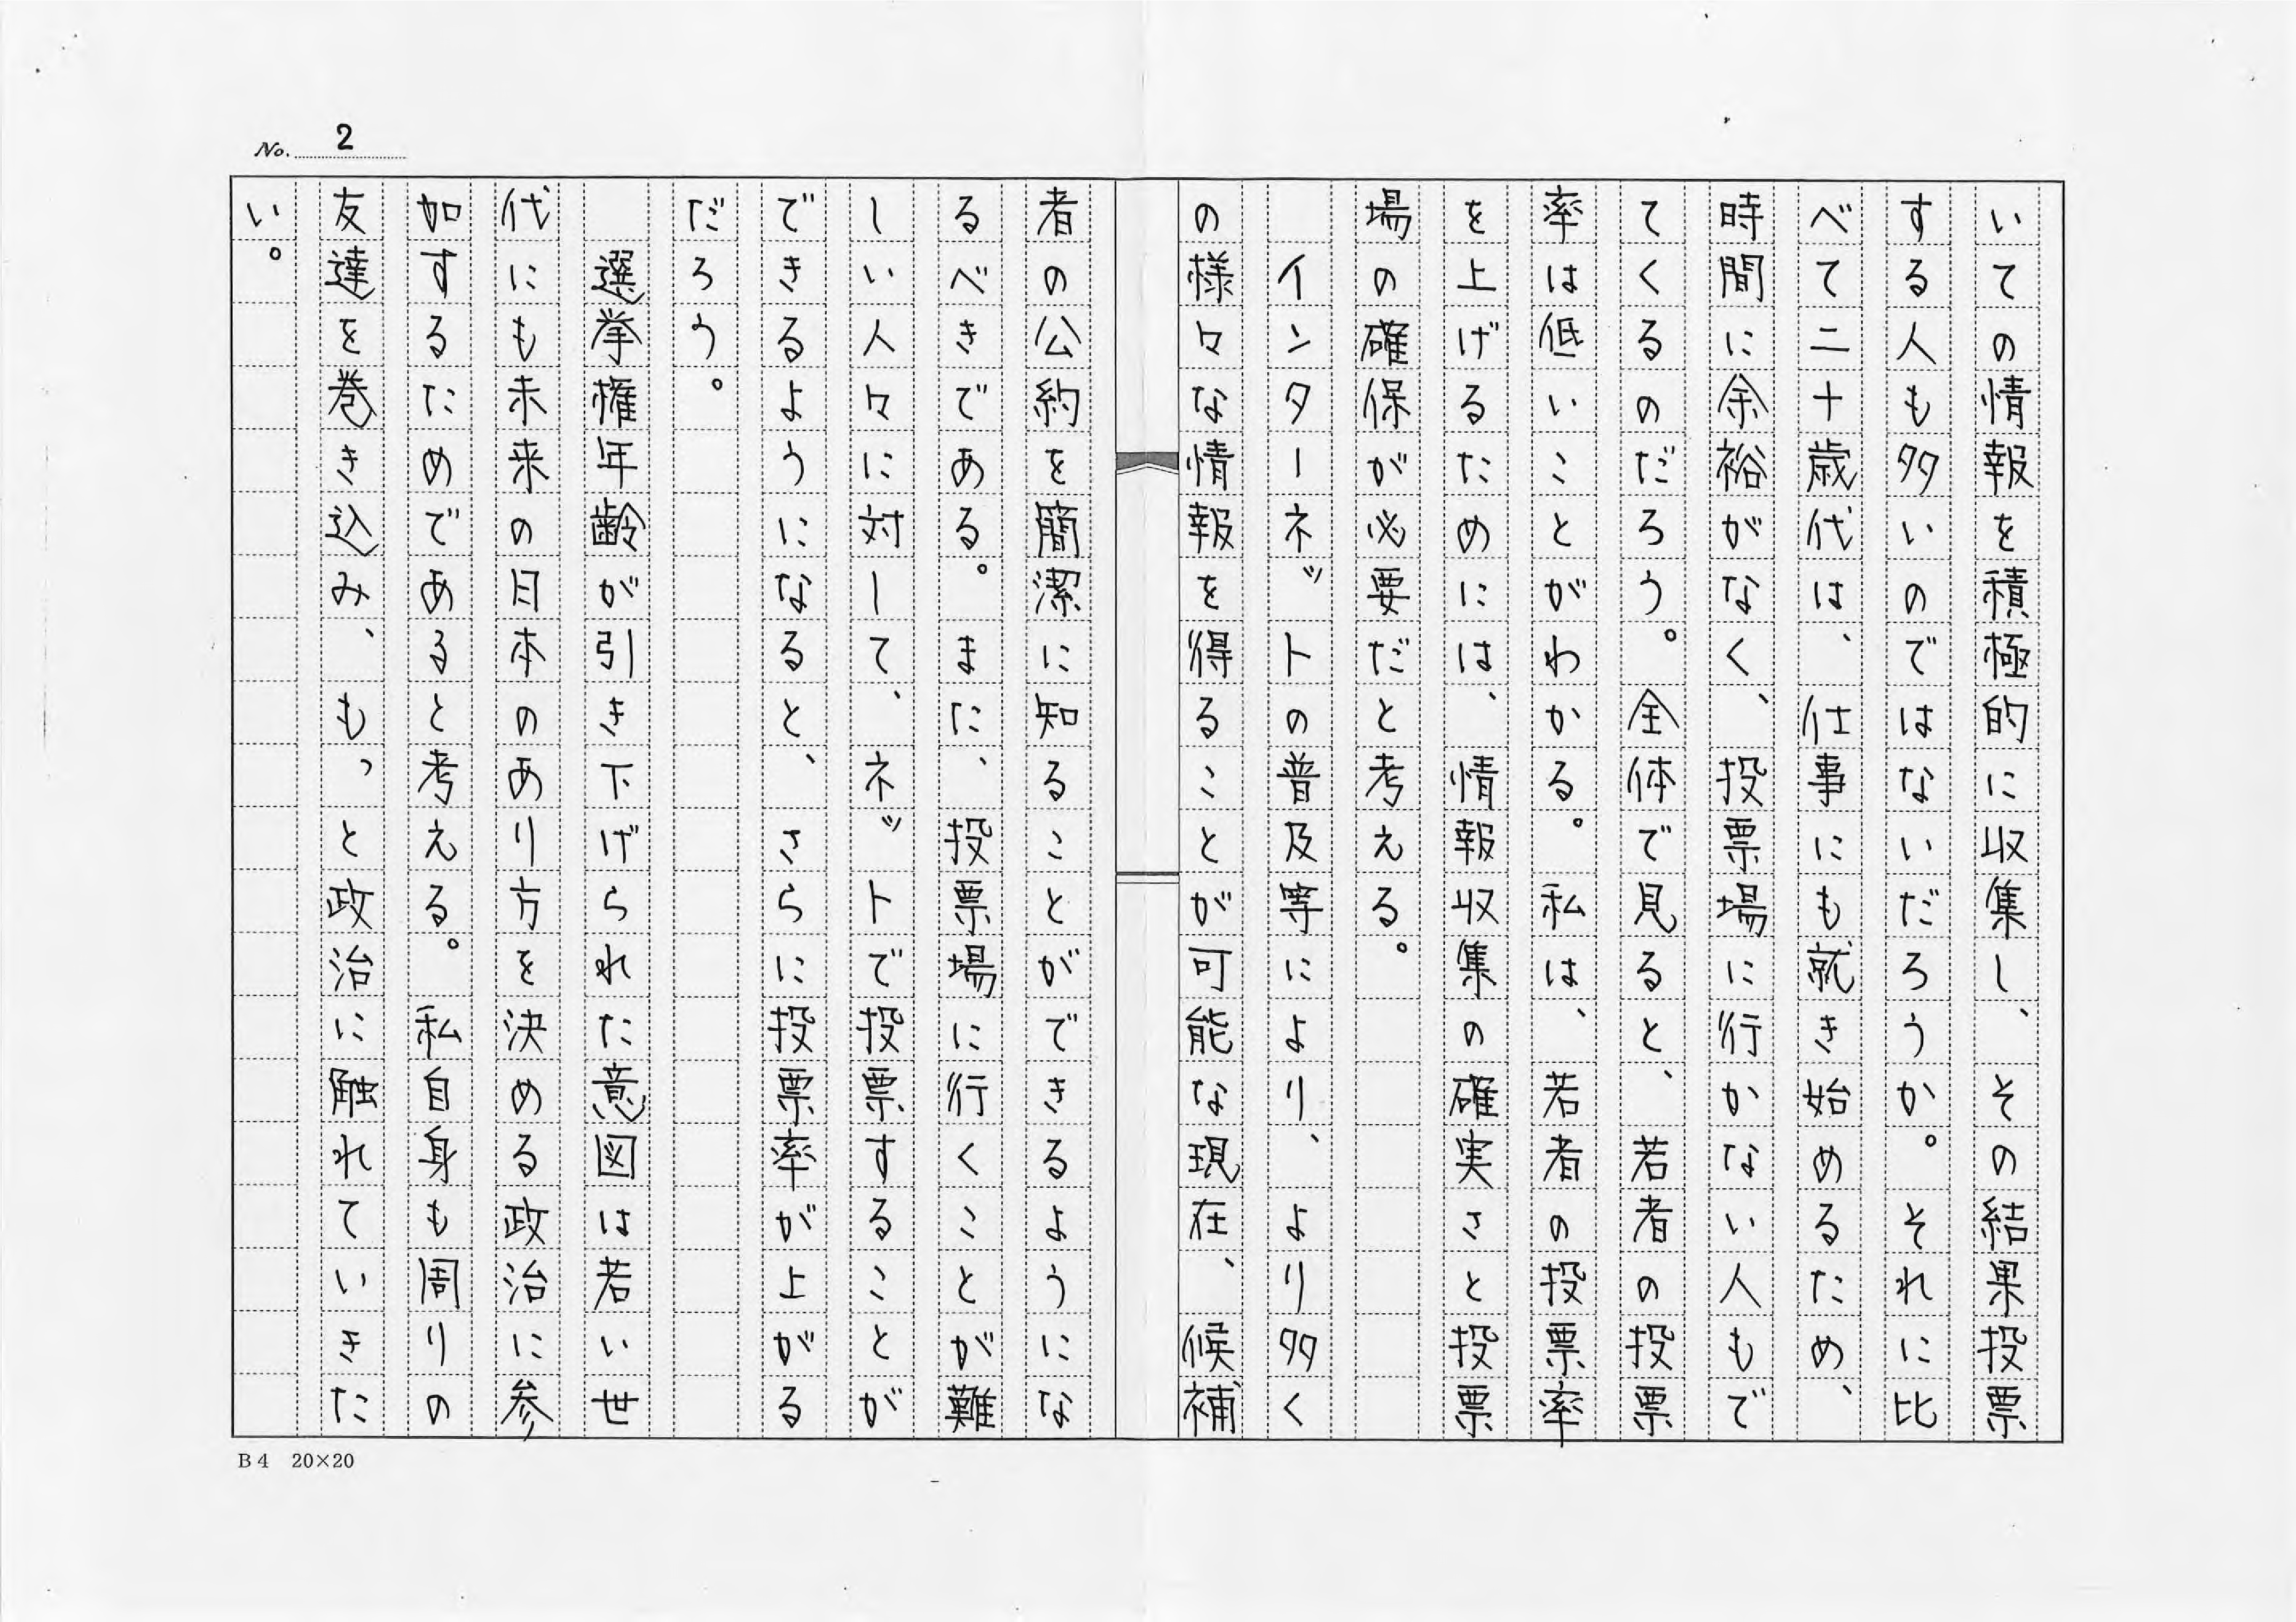 No. 2
いての情報を積極的に収集し、その結果投票
する人も多いのではないだろうか。それに比
べて二十歳代は、仕事にも就き始めるため、
時間に余裕がなく、投票場に行かない人もで
てくるのだろう。全体で見ると、若者の投票
率は低いことがわかる。私は、若者の投票率
を上げるためには、情報収集の確実さと投票
場の確保が必要だと考える。
インターネットの普及等により、より多く
の様々な情報を得ることが可能な現在、候補
者の公約を簡潔に知ることができるようにな
るべきである。また、投票場に行くことが難
しい人々に対して、ネットで投票することが
できるようになると、さらに投票率が上がる
だろう。
選挙権年齢が引き下げられた意図は若い世
代にも未来の日本のあり方を決める政治に参
加するためであると考える。私自身も周りの
友達を巻き込み、もっと政治に触れていきた
い。
B4 20×20